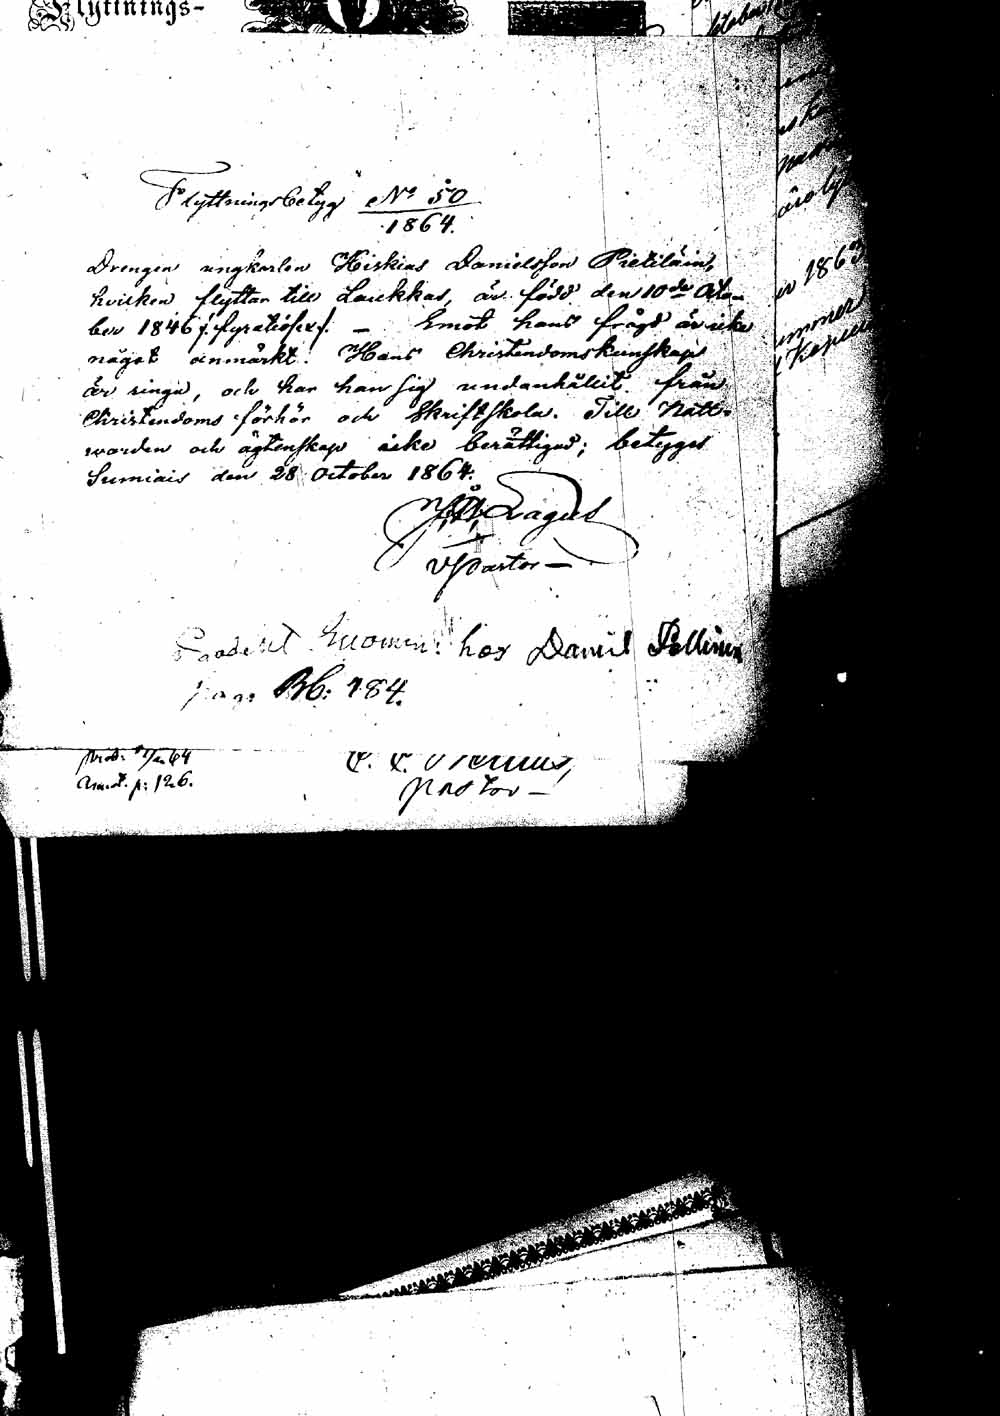 Flyttnings-
Flyttningsbetyg No 50
1864.
Drengen ungkarlen Hiskias Danielsson Pietiläin,
hvilken flyttar till Laukkas, är född den 10de Octo-
ber 1846 /: fyratiosex :/. — Emot hans frägd är icke
något anmärkt. Hans Christendomskunskap
är ringa, och har han sig undanhållit från
Christendoms förhör och Skriftskola. Till Natt-
varden och ägtenskap icke berättigad; betygas
Sumiais den 28 October 1864.
Lagus
V. Pastor —
hos Daniel Pellinen
pag: Bb: 184.
prod: 64
p: 126.
Pastor —
år 1863